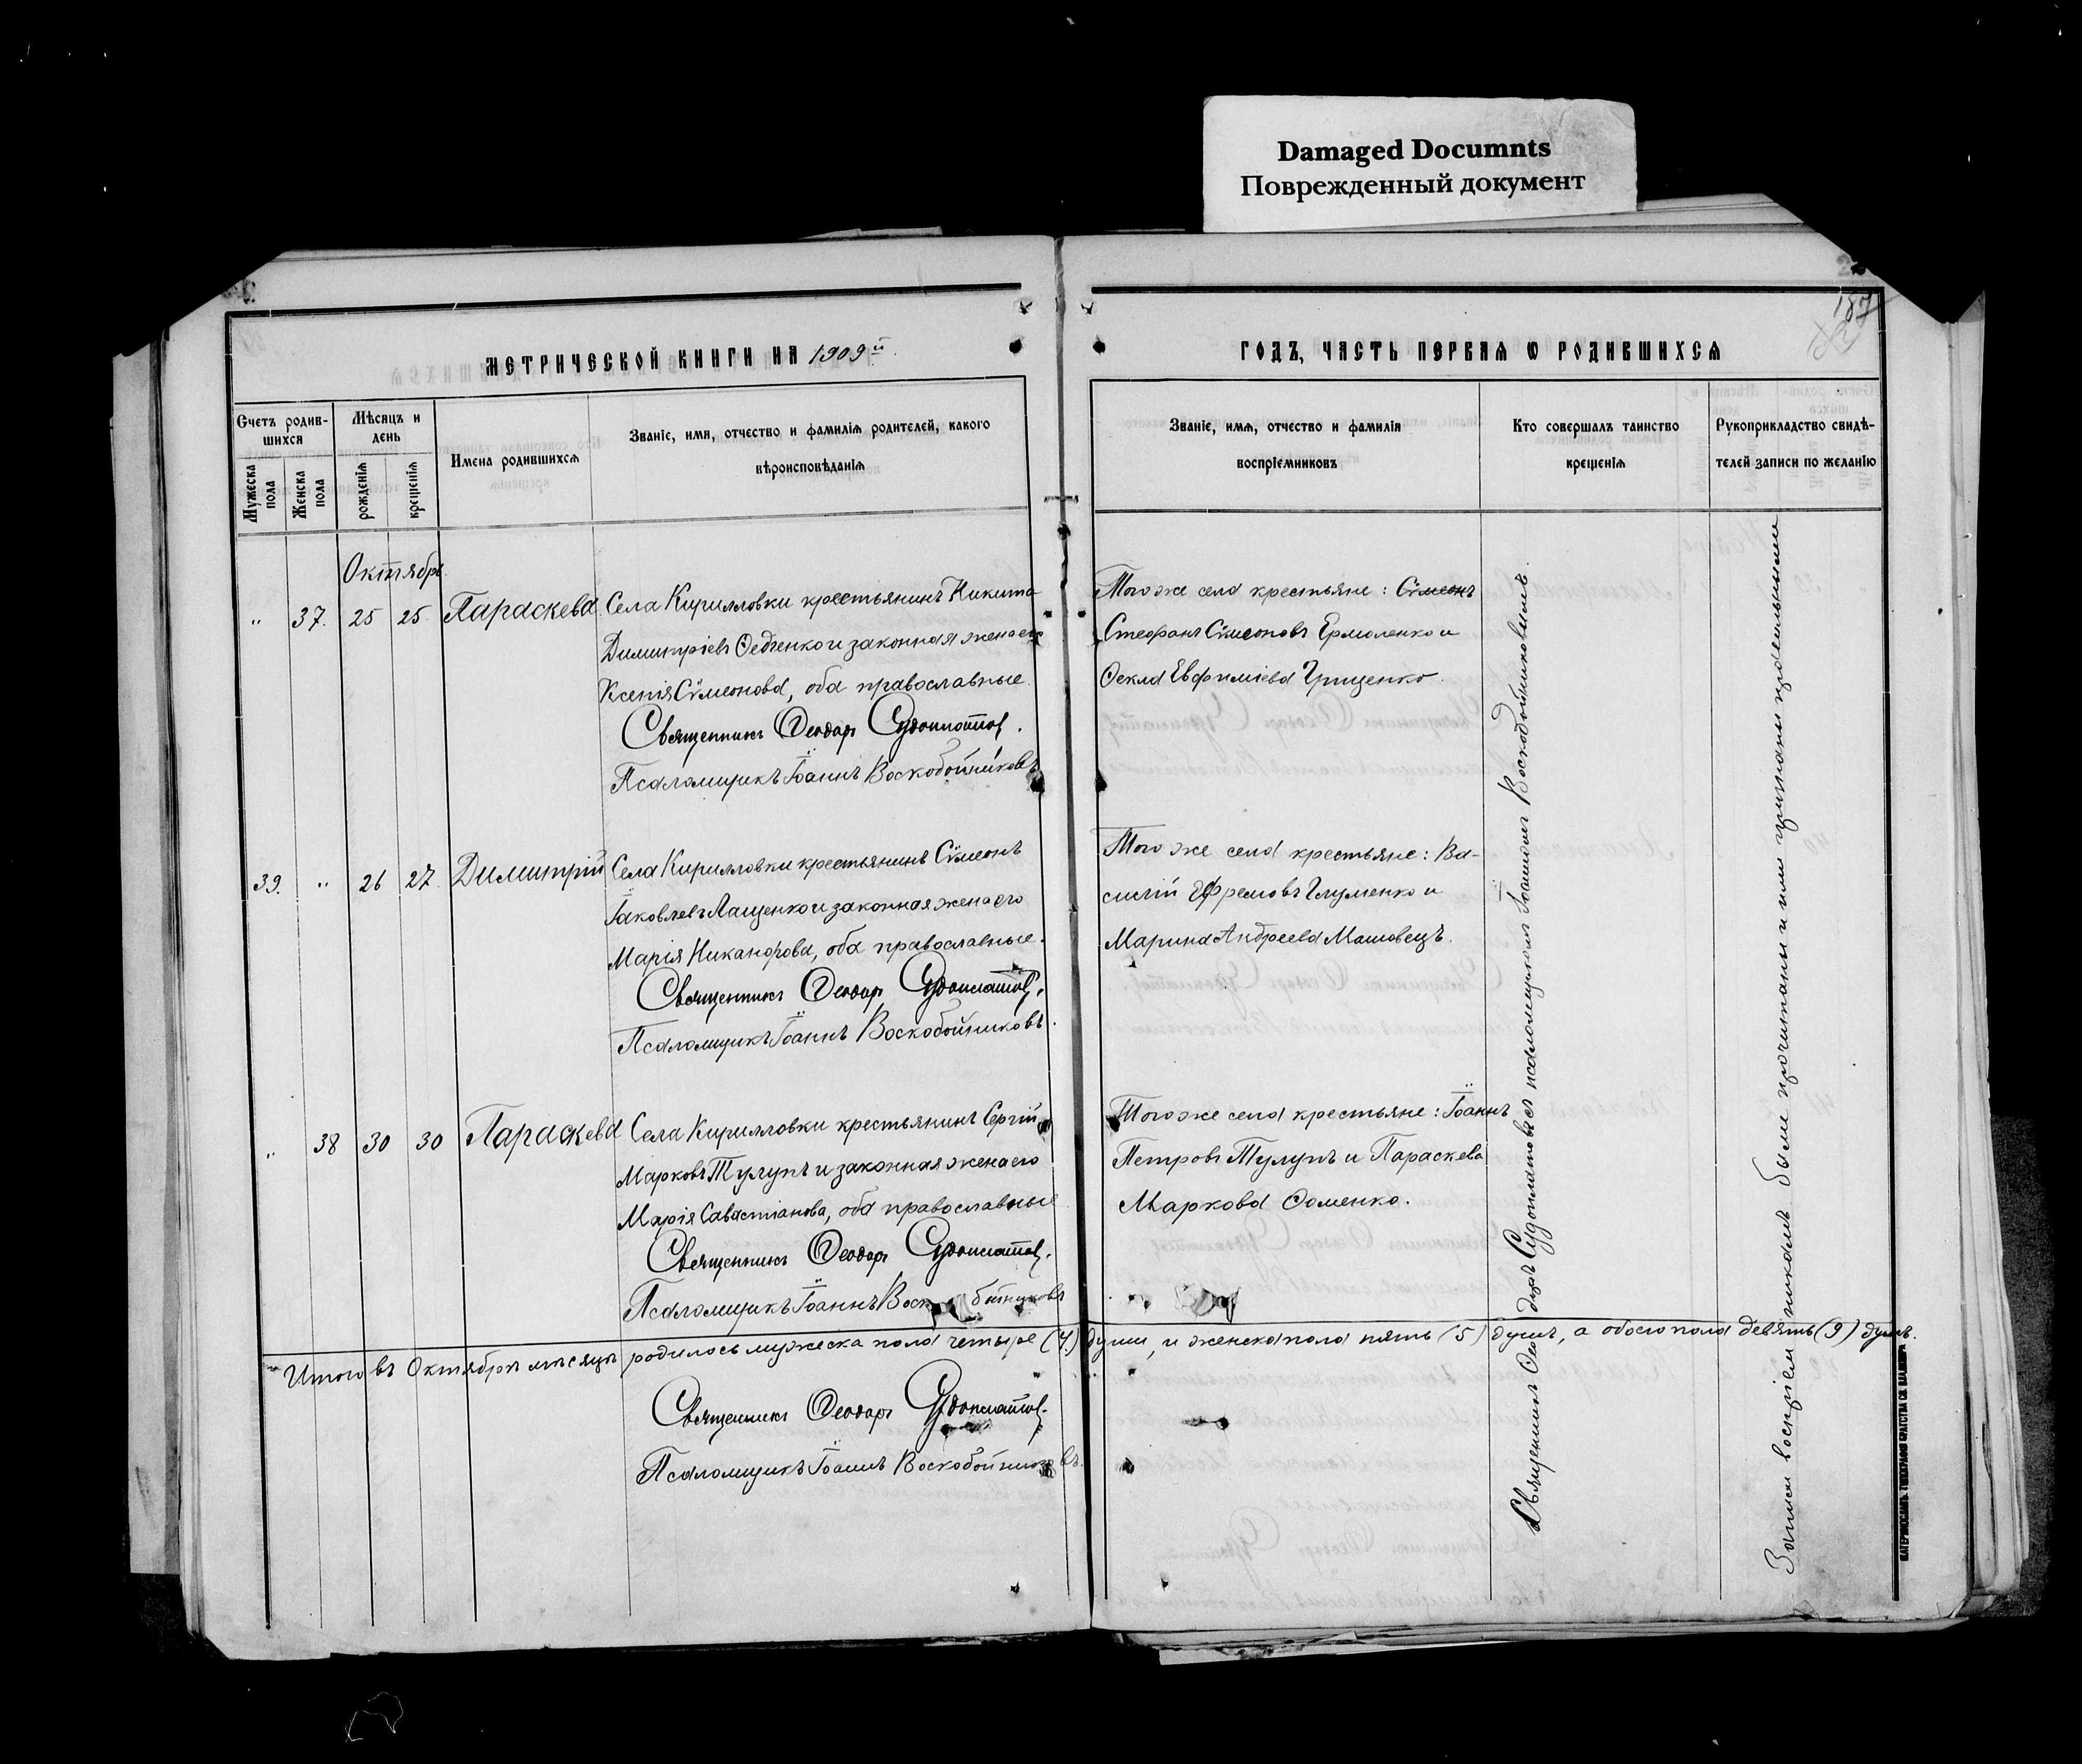 Damaged Documnts
Поврежденный документ
МЕТРИЧЕСКОЙ КНИГИ НА 1909й
ГОДЪ, ЧАСТЬ ПЕРВАЯ Ѡ РОДИВШИХСЯ
187
Счетъ родив-
шихся
Мужеска
пола
Женска
пола
Мѣсяцъ и
день
рожденія
крещенія
Имена родившихся
Званіе, имя, отчество и фамилія родителей, какого
вѣроисповѣданія
Званіе, имя, отчество и фамилія
воспріемниковъ
Кто совершалъ таинство
крещенія
Рукоприкладство свидѣ-
телей записи по желанію
Октябрь
" 37. 25 25 Параскева
Села Кирилловки крестьянинъ Никита
Димитріевъ Ѳедченко и законная жена его
Ксенія Сѵмеонова, оба православные.
Священникъ Ѳеодоръ Судоплатов.
Псаломщикъ Іоаннъ Воскобойниковъ
Того же села крестьяне: Сѵмеонъ
Стефанъ Сѵмеоновъ Ермоленко и
Ѳекла Евфиміева Грищенко.
39. " 26 27 Димитрій
Села Кирилловки крестьянинъ Сѵмеонъ
Іаковлевъ Лащенко и законная жена его
Марія Никанорова, оба православные.
Священникъ Ѳеодоръ Судоплатов.
Псаломщикъ Іоаннъ Воскобойниковъ.
Того же села крестьяне: Ва-
силій Ефремовъ Глуменко и
Марина Андреева Машовецъ.
" 38 30 30 Параскева
Села Кирилловки крестьянинъ Сергій
Марковъ Тулупъ и законная жена его
Марія Савастіанова, оба православные
Священникъ Ѳеодоръ Судоплатов.
Псаломщикъ Іоаннъ Воскобойниковъ
Того же села крестьяне: Іоаннъ
Петровъ Тулупъ и Параскева
Маркова Ѳоменко.
Священникъ Ѳеодоръ Судоплатовъ съ псаломщикомъ Іоанномъ Воскобойниковымъ.
Записи воспріемникамъ были прочитаны и ими признаны правильными
Итого въ Октябрѣ мѣсяцѣ родилось мужеска пола четыре (4) души, и женска пола пять (5) душъ, а обоего пола девять (9) душъ.
Священникъ Ѳеодоръ Судоплатов.
Псаломщикъ Іоаннъ Воскобойниковъ.